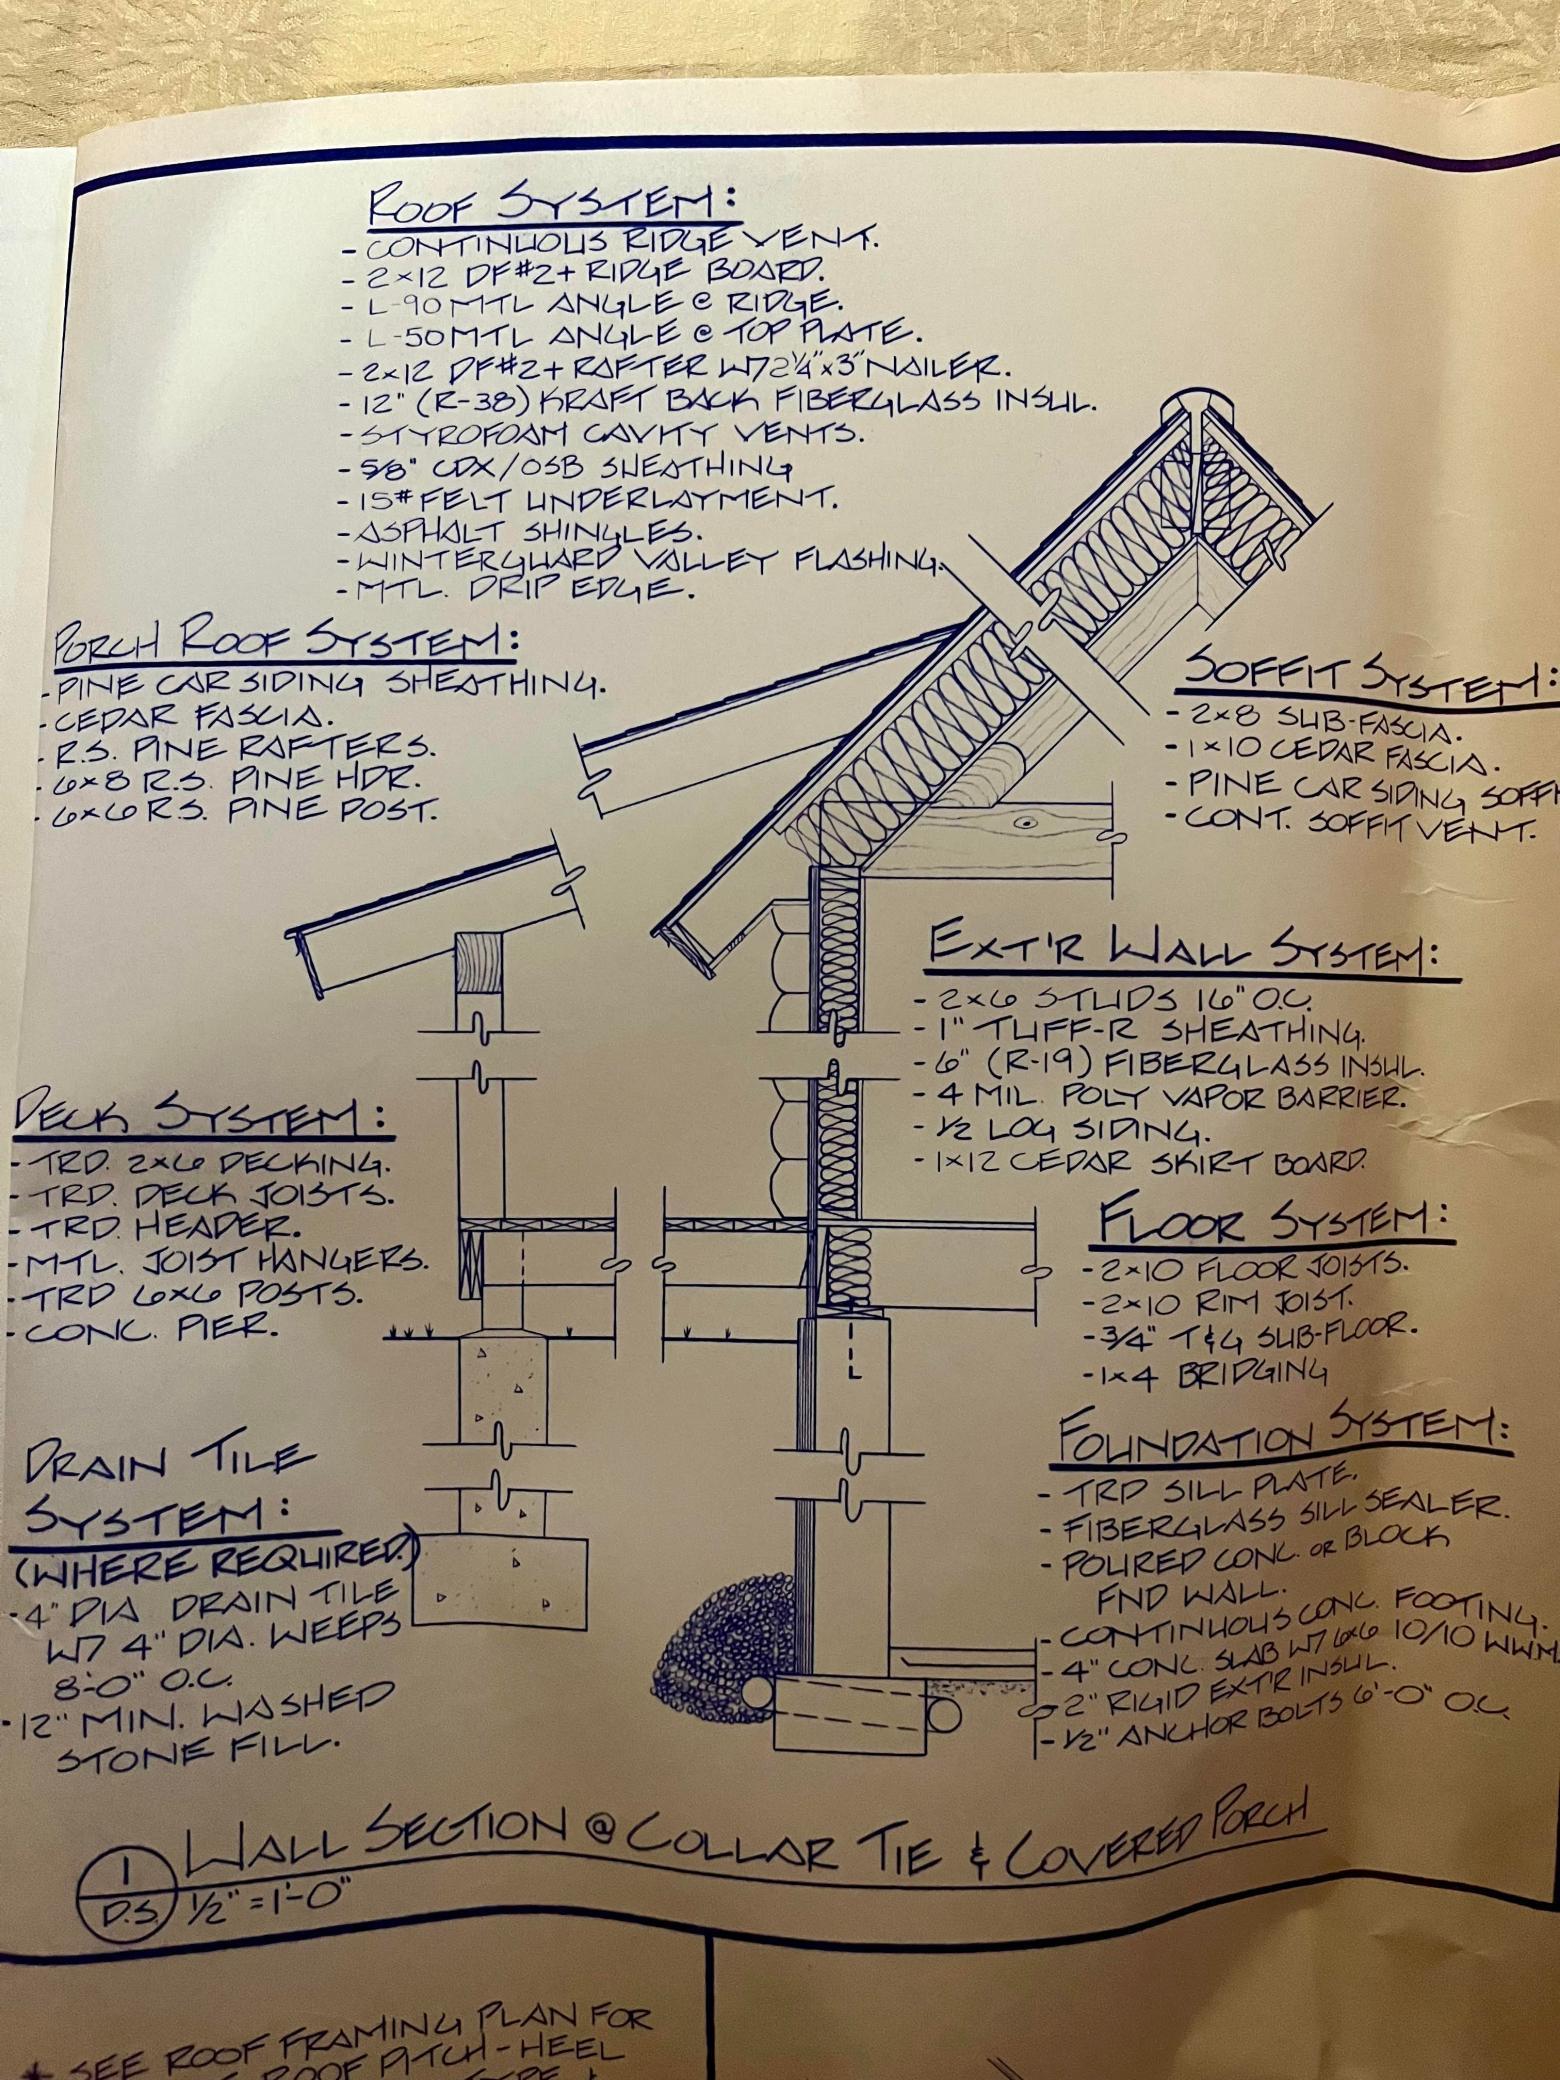 ROOF SYSTEM:
- CONTINUOUS RIDGE VENT.
- 2x12 DF#2+ RIDGE BOARD.
- L-90 MTL ANGLE @ RIDGE.
- L-50 MTL ANGLE @ TOP PLATE.
- 2x12 DF#2+ RAFTER W/ 2 1/4"x3" NAILER.
- 12" (R-38) KRAFT BACK FIBERGLASS INSUL.
- STYROFOAM CAVITY VENTS.
- 5/8" CDX/OSB SHEATHING
- 15# FELT UNDERLAYMENT.
- ASPHALT SHINGLES.
- WINTERGUARD VALLEY FLASHING.
- MTL. DRIP EDGE.
PORCH ROOF SYSTEM:
- PINE CAR SIDING SHEATHING.
- CEDAR FASCIA.
- R.S. PINE RAFTERS.
- 6x8 R.S. PINE HDR.
- 6x6 R.S. PINE POST.
SOFFIT SYSTEM:
- 2x8 SUB-FASCIA.
- 1x10 CEDAR FASCIA.
- PINE CAR SIDING SOFFI
- CONT. SOFFIT VENT.
EXT'R WALL SYSTEM:
- 2x6 STUDS 16" O.C.
- 1" TUFF-R SHEATHING.
- 6" (R-19) FIBERGLASS INSUL.
- 4 MIL. POLY VAPOR BARRIER.
- 1/2 LOG SIDING.
- 1x12 CEDAR SKIRT BOARD.
DECK SYSTEM:
- TRD. 2x6 DECKING.
- TRD. DECK JOISTS.
- TRD. HEADER.
- MTL. JOIST HANGERS.
- TRD 6x6 POSTS.
- CONC. PIER.
FLOOR SYSTEM:
- 2x10 FLOOR JOISTS.
- 2x10 RIM JOIST.
- 3/4" T&G SUB-FLOOR.
- 1x4 BRIDGING
DRAIN TILE
SYSTEM:
(WHERE REQUIRED.)
- 4" DIA DRAIN TILE
W/ 4" DIA. WEEPS
8'-0" O.C.
- 12" MIN. WASHED
STONE FILL.
FOUNDATION SYSTEM:
- TRD SILL PLATE.
- FIBERGLASS SILL SEALER.
- POURED CONC. OR BLOCK
FND WALL.
- CONTINUOUS CONC. FOOTING.
- 4" CONC. SLAB W/ 6x6 10/10 WWM.
- 2" RIGID EXT'R INSUL.
- 1/2" ANCHOR BOLTS 6'-0" O.C.
1
D.S.
WALL SECTION @ COLLAR TIE & COVERED PORCH
1/2" = 1'-0"
* SEE ROOF FRAMING PLAN FOR
ROOF PITCH-HEEL